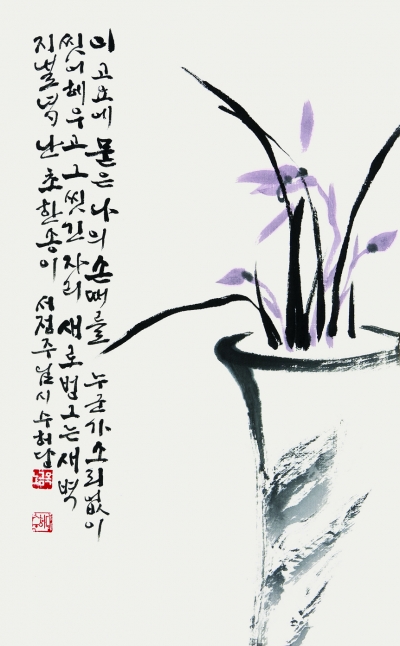 이 고요에 묻은 나의 손때를 누군가 소리없이
씻어헤우고 그 씻긴 자리 새로 벙그는 새벽
지샐녘 난초 한 송이 서정주님 시 수허당